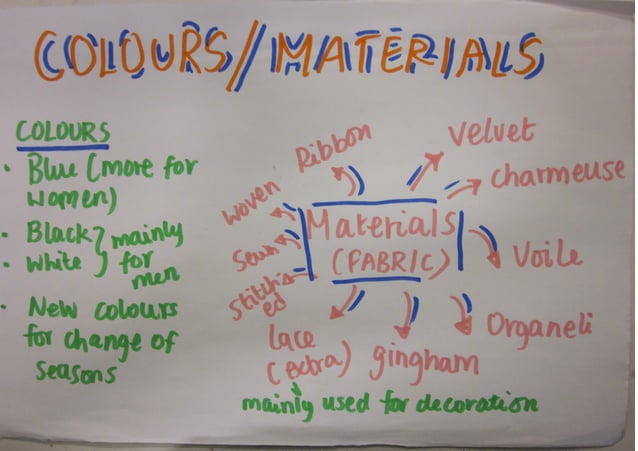 COLOURS/MATERIALS
COLOURS
• Blue (more for
women)
• Black } mainly
• White } for
men
• New colours
for change of
seasons
Ribbon
Velvet
charmeuse
Woven
Sewn
Stitch
ed
Materials
(FABRIC)
Voile
Organeli
gingham
lace
(extra)
mainly used for decoration